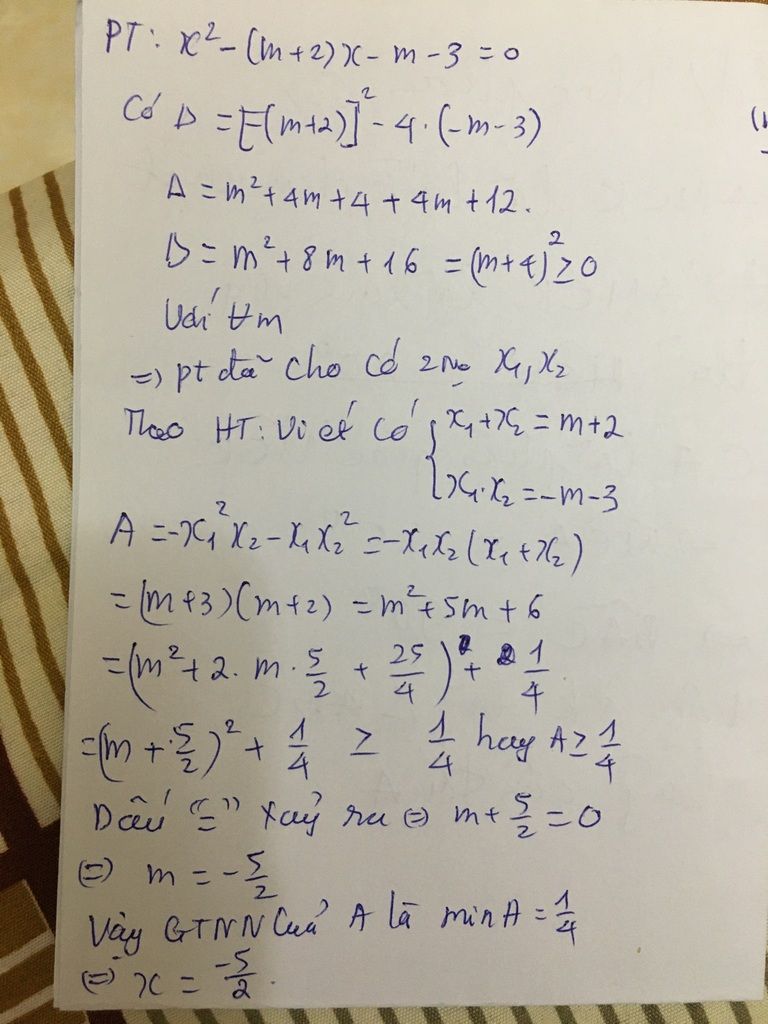 PT: x² - (m+2)x - m - 3 = 0
Có Δ = [-(m+2)]² - 4·(-m-3)
Δ = m² + 4m + 4 + 4m + 12.
Δ = m² + 8m + 16 = (m+4)² ≥ 0
Với ∀m
=> pt đã cho có 2 No x₁, x₂
Theo HT: Vi ét có { x₁ + x₂ = m+2
x₁·x₂ = -m-3
A = -x₁²x₂ - x₁x₂² = -x₁x₂(x₁+x₂)
= (m+3)(m+2) = m² + 5m + 6
= (m² + 2. m · 5/2 + 25/4) + 1/4
= (m + 5/2)² + 1/4 ≥ 1/4 hay A ≥ 1/4
Dấu "=" xảy ra (=) m + 5/2 = 0
(=) m = -5/2
Vậy GTNN của A là min A = 1/4
(=) x = -5/2.